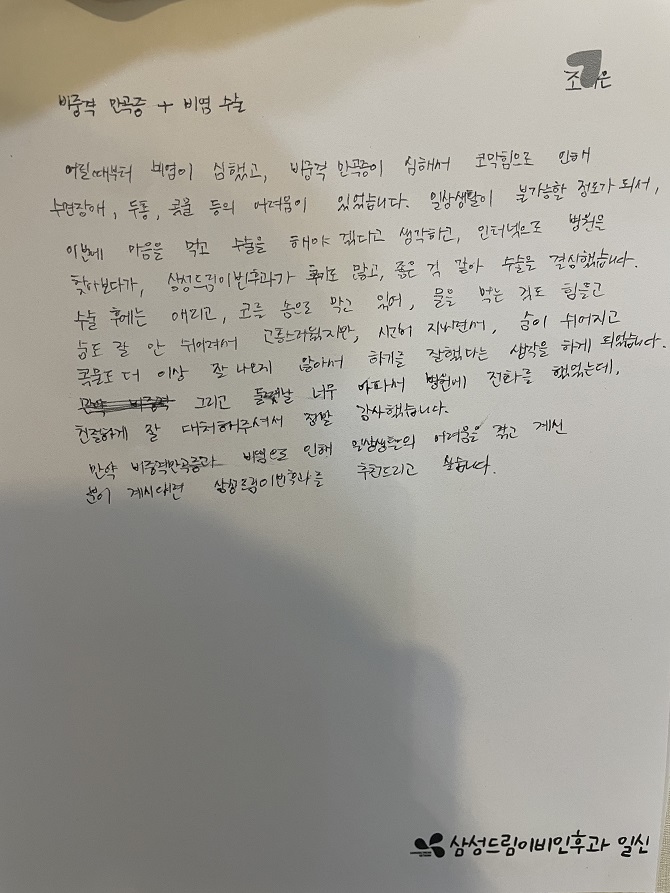 조 은
비중격 만곡증 + 비염 수술
어릴때부터 비염이 심했고, 비중격 만곡증이 심해서 코막힘으로 인해
수면장애, 두통, 콧물 등의 어려움이 있었습니다. 일상생활이 불가능할 정도가 되서,
이번에 마음을 먹고 수술을 해야겠다고 생각하고, 인터넷으로 병원을
찾아보다가, 삼성드림이비인후과가 후기도 많고, 좋은 것 같아 수술을 결심했습니다.
수술 후에는 애리고, 코를 솜으로 막고 있어, 물을 먹는 것도 힘들고
숨도 잘 안 쉬어져서 고통스러웠지만, 시간이 지나면서, 숨이 쉬어지고
콧물도 더 이상 잘 나오지 않아서 하기를 잘했다는 생각을 하게 되었습니다.
그리고 둘쨋날 너무 아파서 병원에 전화를 했었는데,
친절하게 잘 대처해주셔서 정말 감사했습니다.
만약 비중격만곡증과 비염으로 인해 일상생활의 어려움을 겪고 계신
분이 계시다면 삼성드림이비인후과를 추천드리고 싶습니다.
삼성드림이비인후과 일신